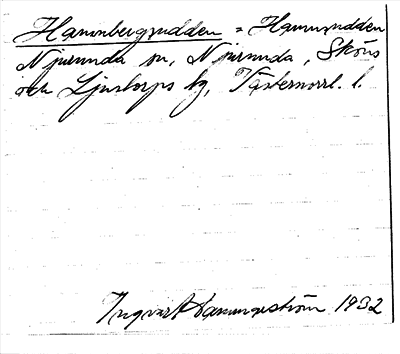 Hamnbergsudden = Hamnudden
Njurunda sn, Njurunda, Sköns
och Ljustorps tg, Västernorrl. l.
Ingvar 1932